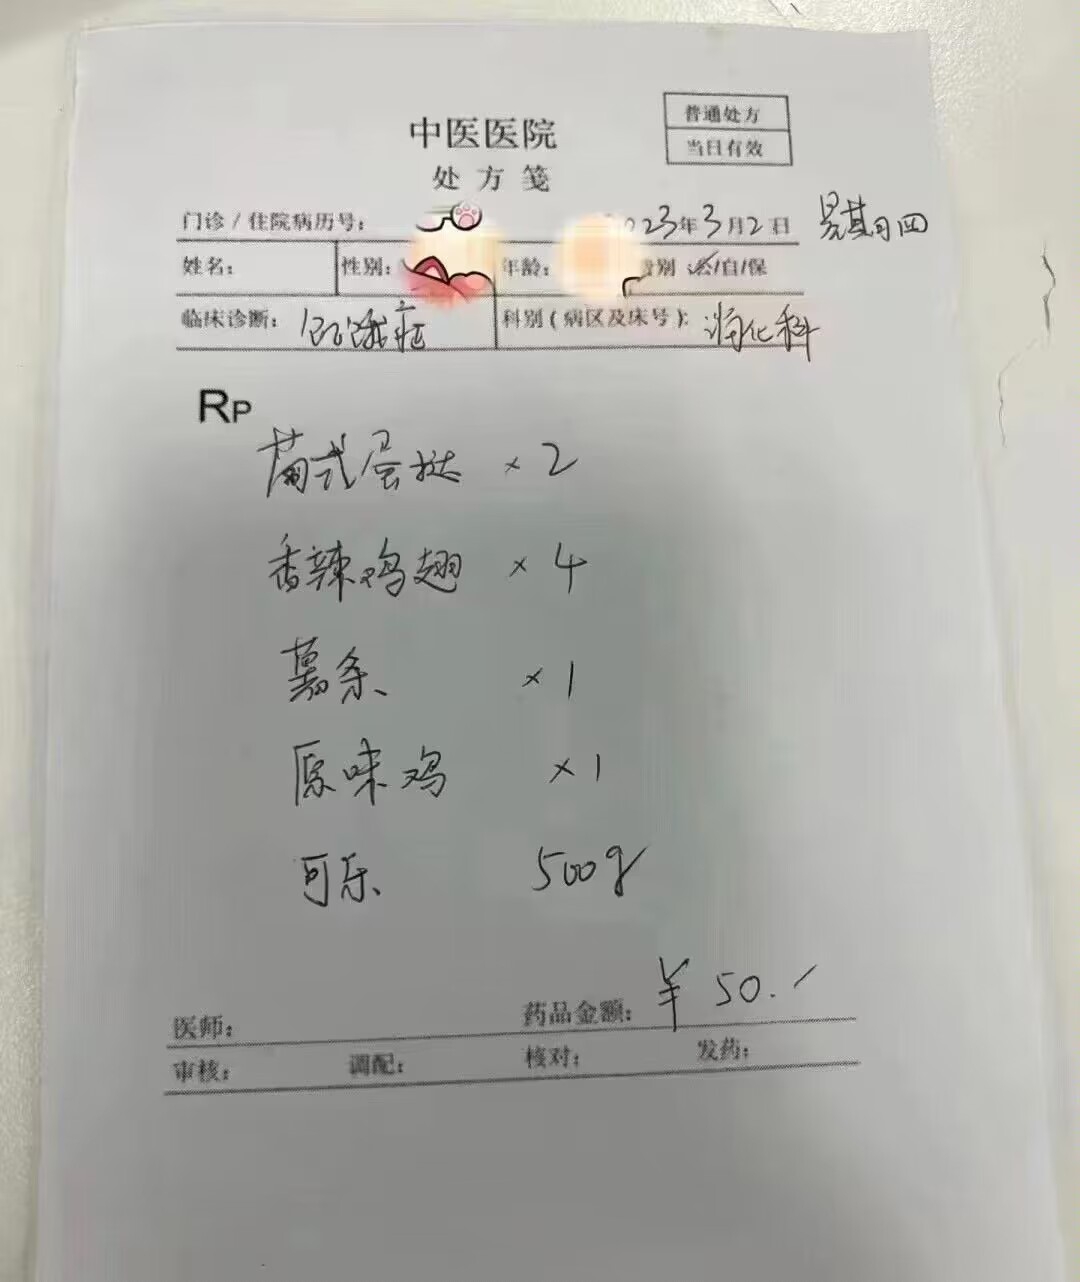 普通处方
当日有效
中医医院
处方笺
门诊/住院病历号： 2023年3月2日 星期四
姓名： 性别： 年龄： 费别 公/自/保
临床诊断： 饥饿症 科别(病区及床号)： 消化科
RP
葡式蛋挞 ×2
香辣鸡翅 ×4
薯条 ×1
原味鸡 ×1
可乐 500g
医师： 药品金额： ¥50.
审核： 调配： 核对： 发药：